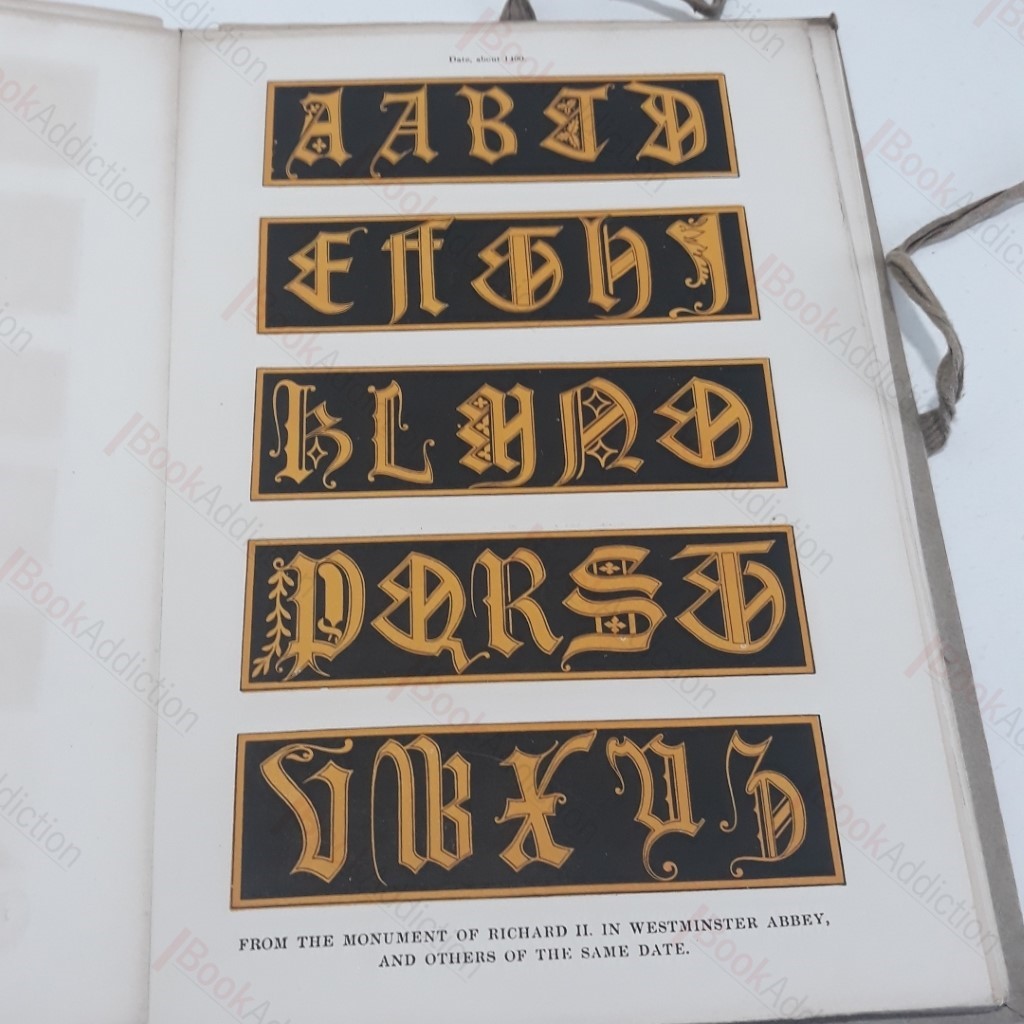 Date, about 1400.
A A B C D
E F G H I
K L M N O
P Q R S T
V W X Y Z
FROM THE MONUMENT OF RICHARD II. IN WESTMINSTER ABBEY,
AND OTHERS OF THE SAME DATE.
BookAddiction